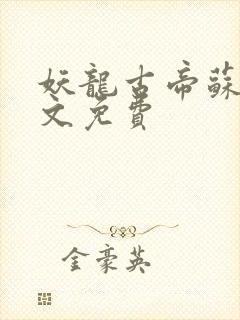 妖龍古帝蘇
文免費
金豪英